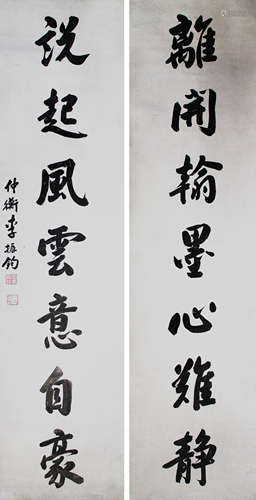 離開翰墨心難静
説起風雲意自豪
仲衡李振鈞